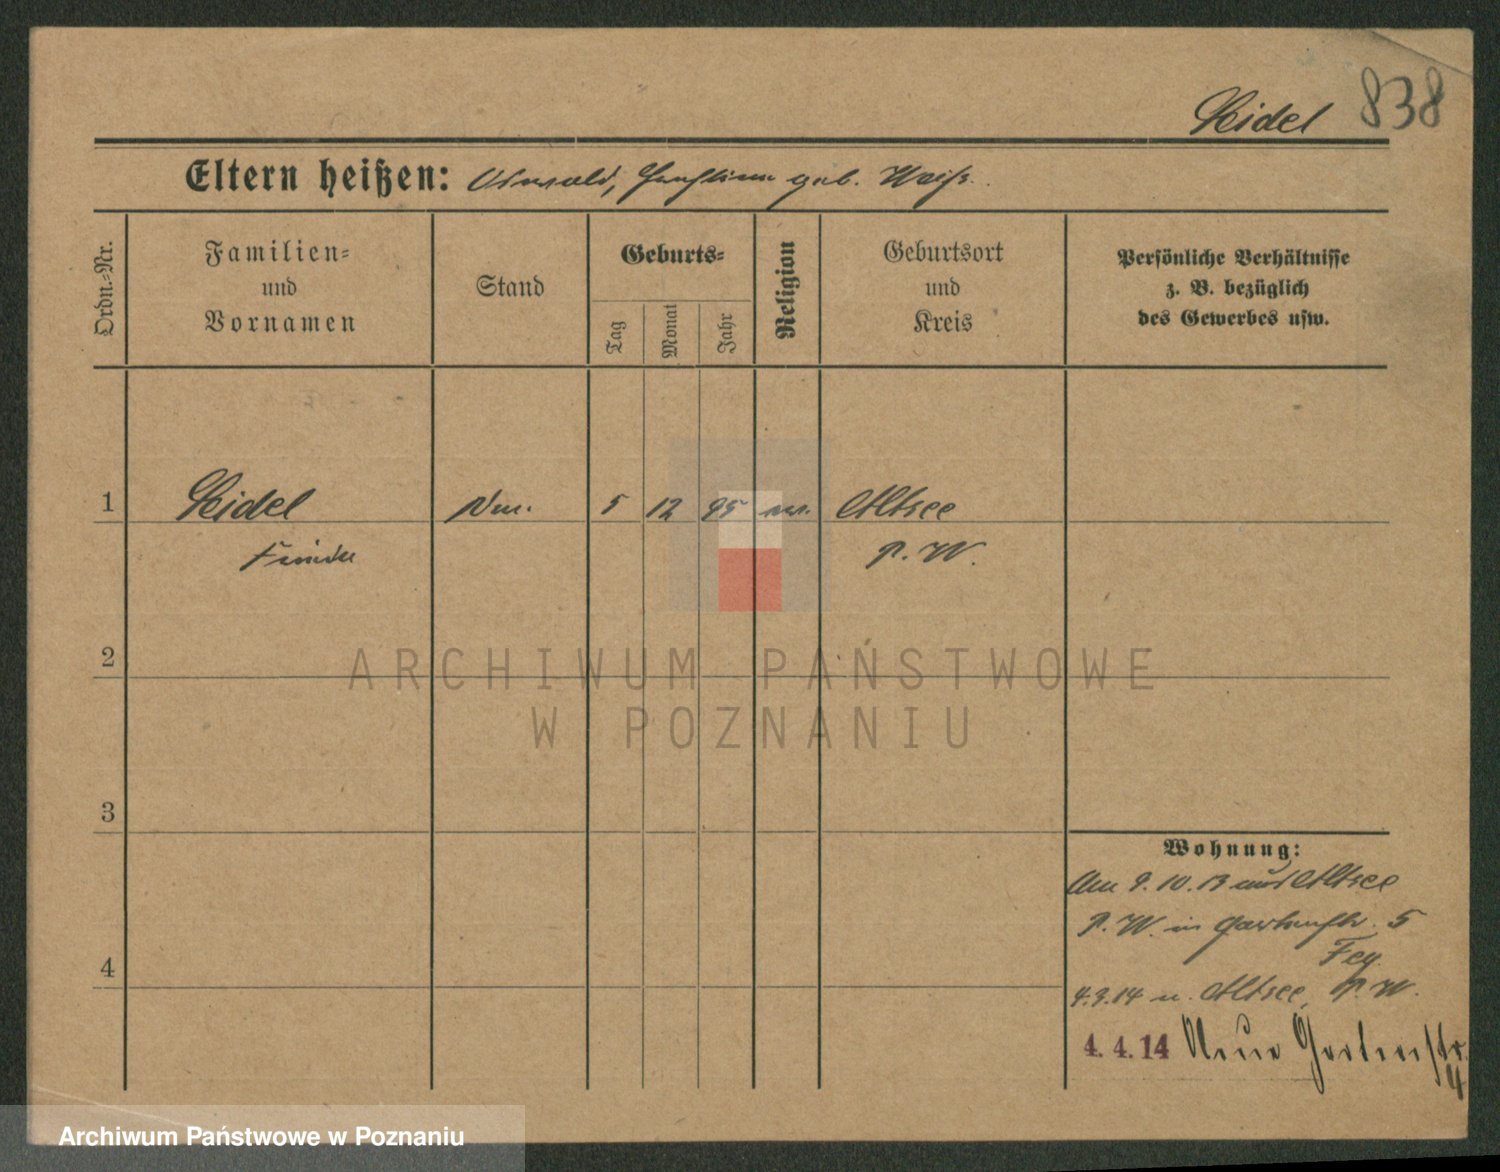 Seidel 838
Eltern heißen: Oswald, geb. Weiß.
Ordn.-Nr.
Familien- und Vornamen
Stand
Geburts-
Tag
Monat
Jahr
Religion
Geburtsort und Kreis
Persönliche Verhältnisse
z. B. bezüglich
des Gewerbes usw.
1 Seidel 5 12 95 Altsee
P. W.
2
3
4
Wohnung:
Am 9.10.13 Altsee
P. W. in Gartenstr. 5
4.3.14 n. Altsee, P. W.
4. 4. 14 Neue Gartenstr.
4
ARCHIWUM PAŃSTWOWE
W POZNANIU
Archiwum Państwowe w Poznaniu